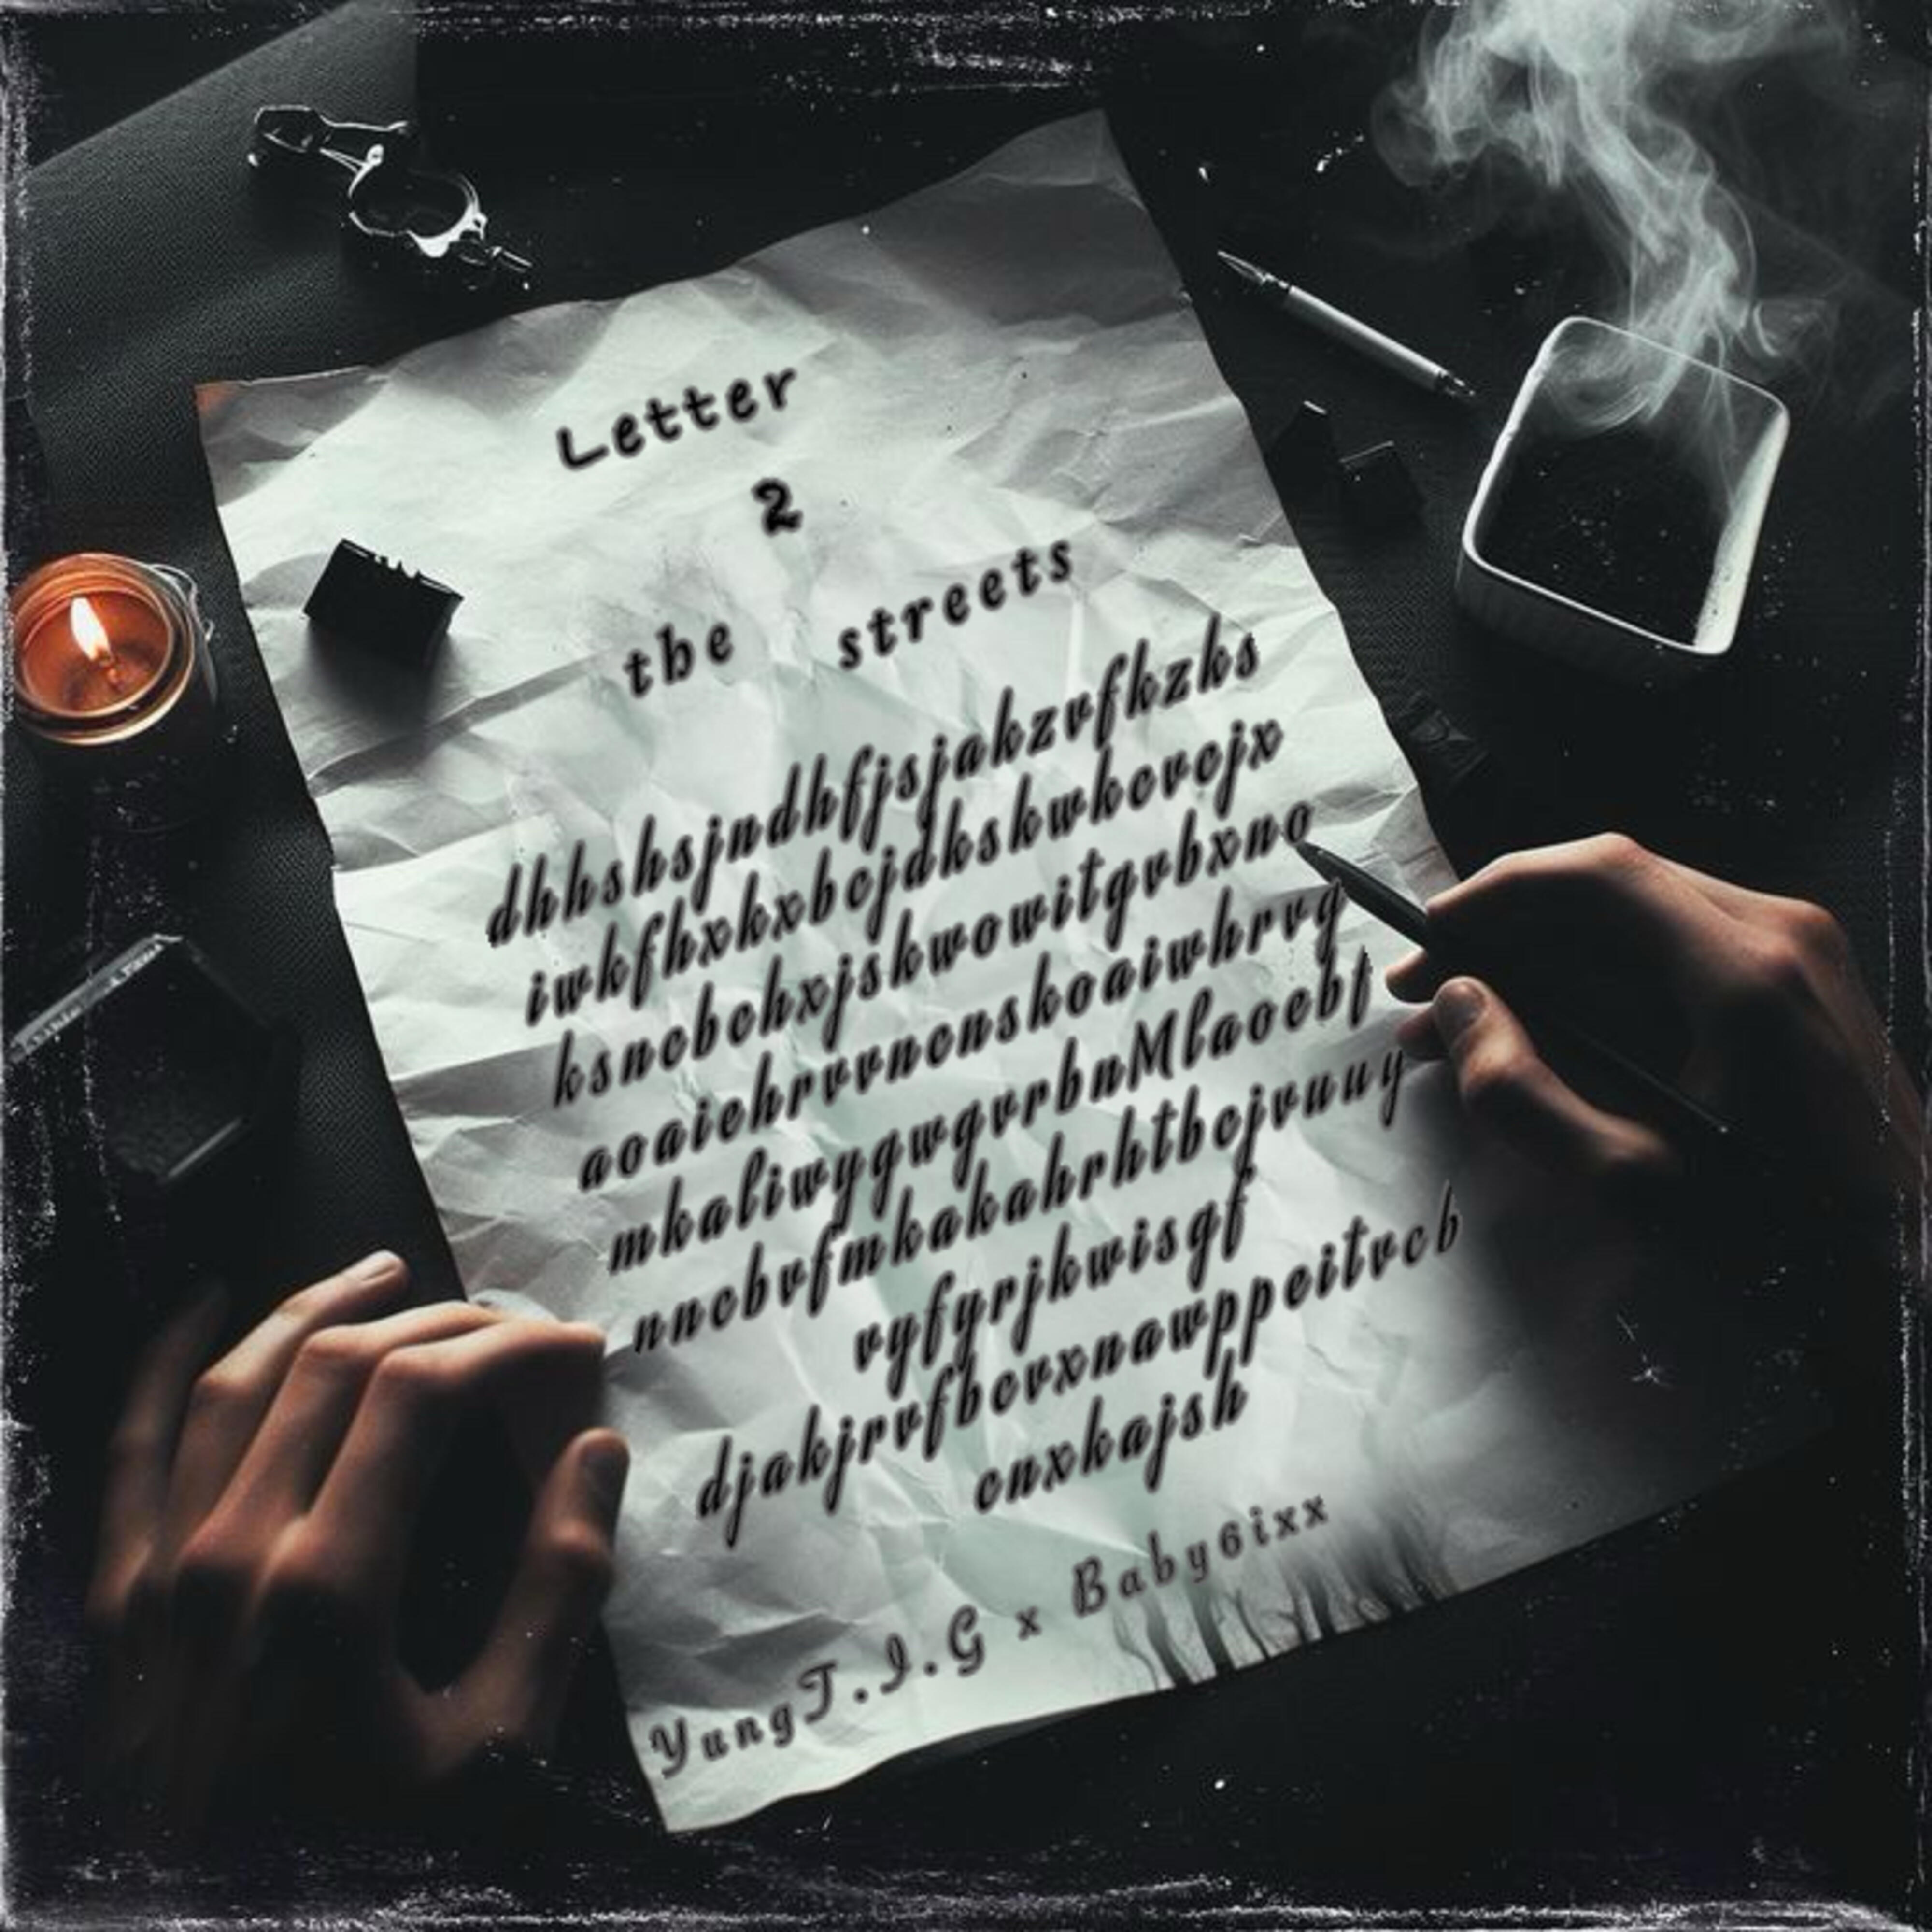 Letter
2
the streets
dhhshsjndhfjsjakzvfkzks
iwkfhxkxbcjdkskwkcvcjx
ksncbchxjskwowitgvbxno
aoaiehrvvncnskoaiwhrvg
mkaliwygwgvrbnMlaoebf
nncbvfmkakahrhtbcjvuuy
vyfyrjkwisgf
djakjrvfbcvxnawppeitvcb
cnxkajsh
YungT.I.G x Baby6ixx